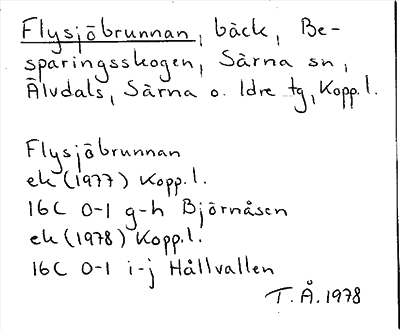 Flysjöbrunnan, bäck, Be-
sparingsskogen, Särna sn,
Älvdals, Särna o. Idre tg, Kopp.l.
Flysjöbrunnan
ek (1977) Kopp.l.
16C 0-1 g-h Björnåsen
ek (1978) Kopp.l.
16C 0-1 i-j Hållvallen
T.Å. 1978